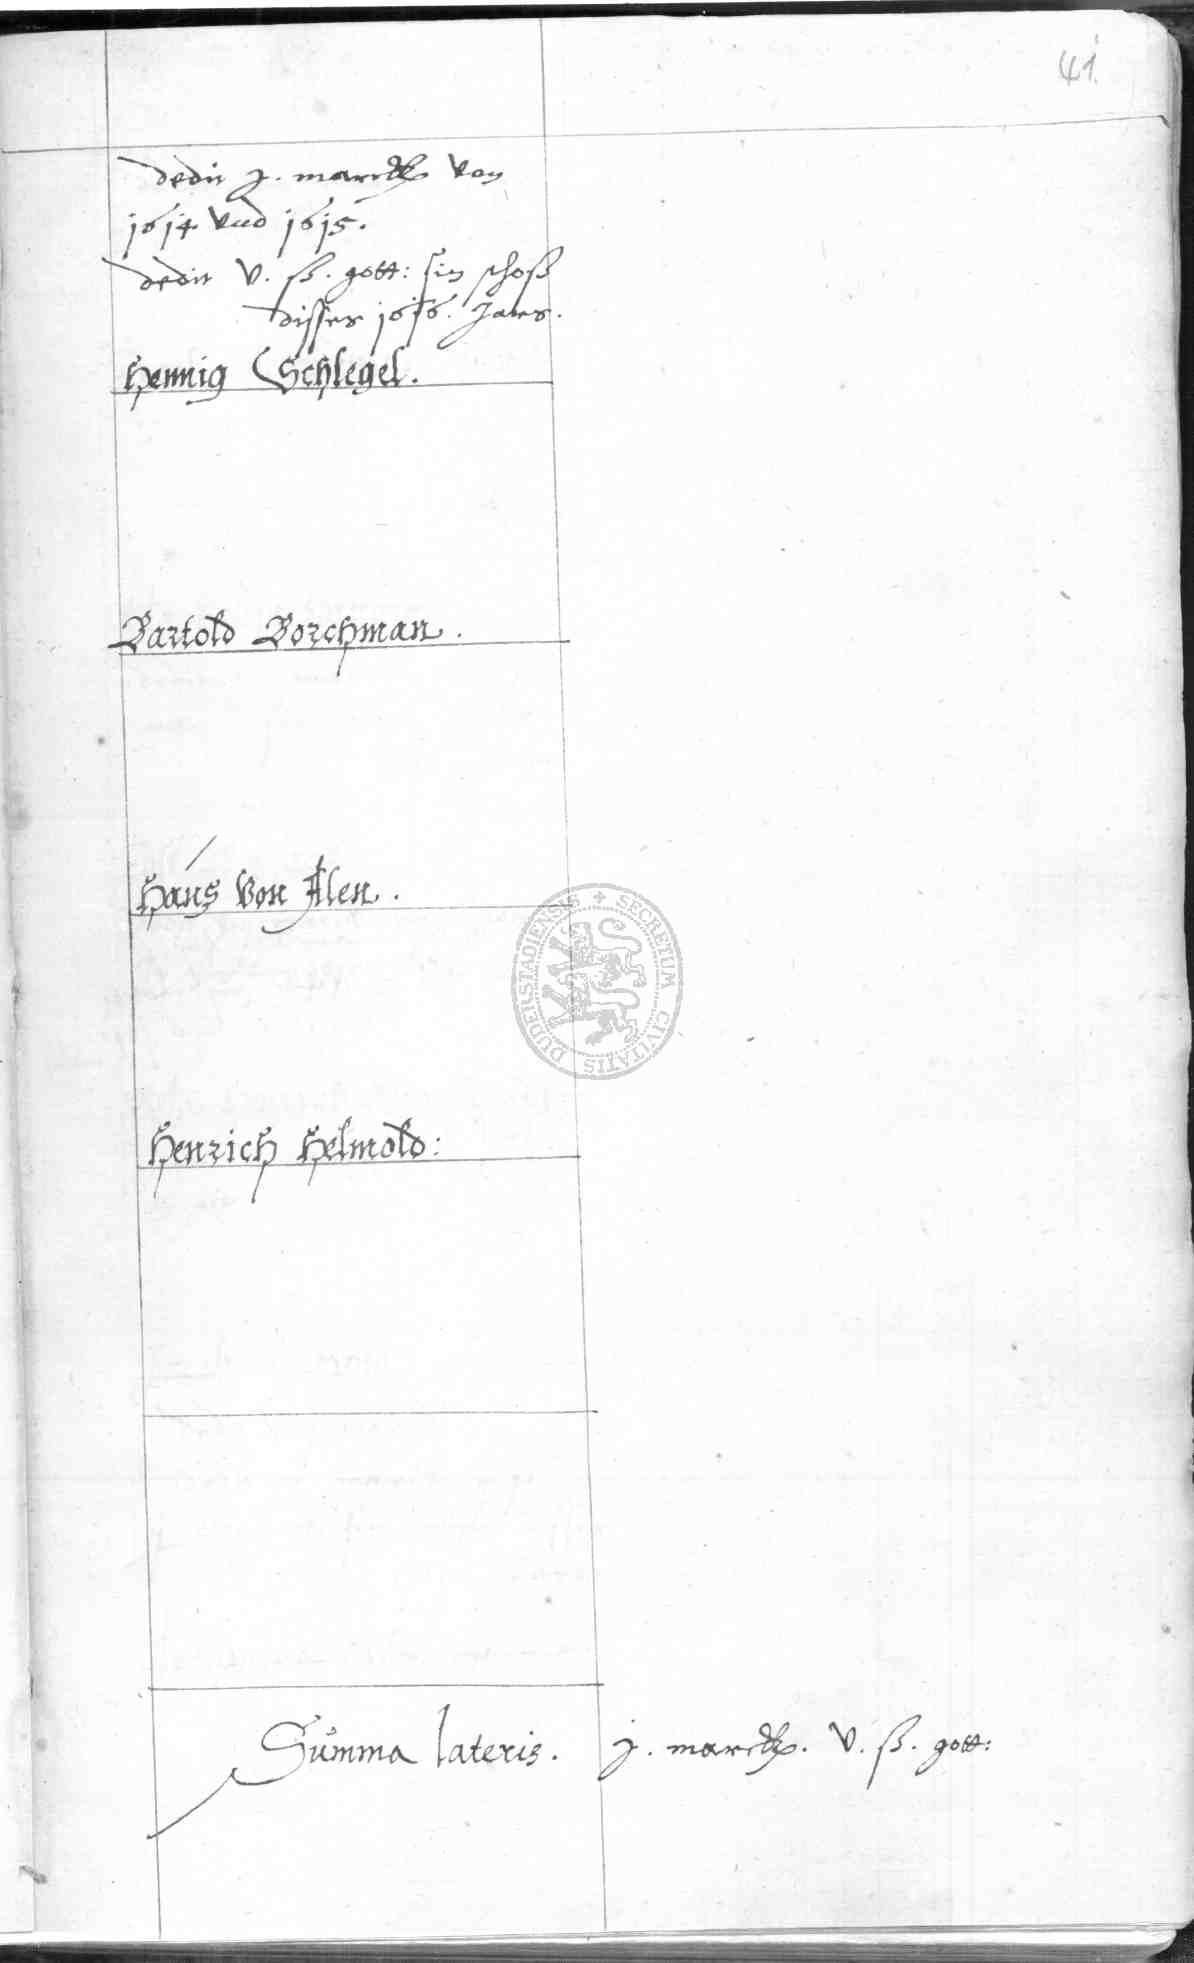 41
dedit j. marck von
1614 vnd 1615.
dedit v. ß. gott: sin schoß
disses 1616. Jares.
Hennig Schlegel.
Bartold Borchman.
Hans von Alen.
SECRETUM CIVITATIS DUDERSTADIENSIS
Henrich Helmold:
Summa lateris. j. marck. v. ß. gott: